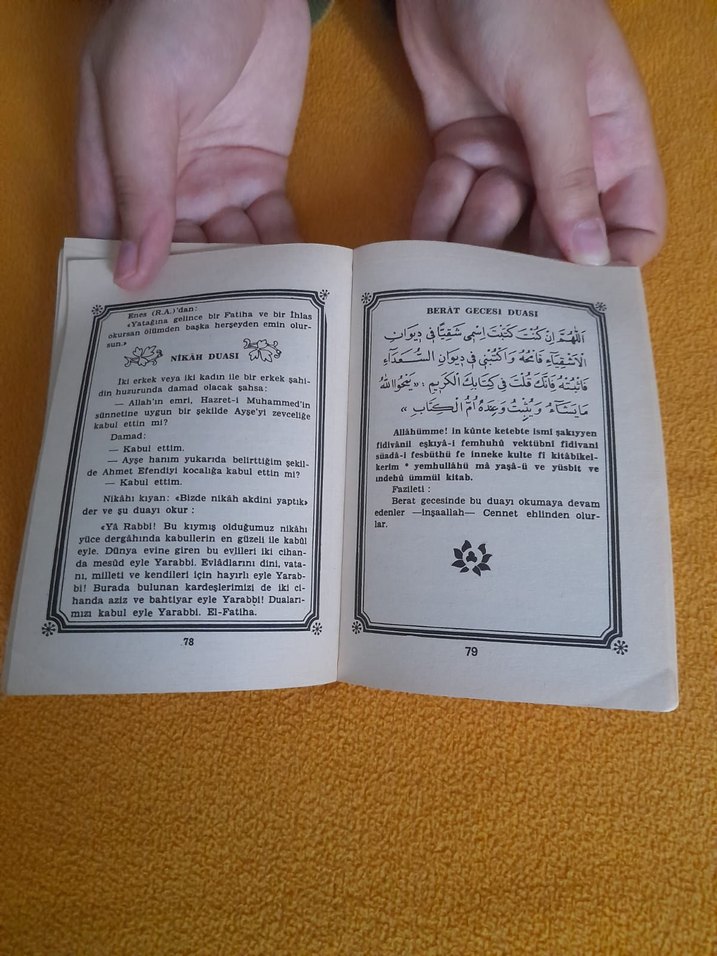 Enes (R.A.)'dan:
«Yatağına gelince bir Fatiha ve bir İhlas
okursan ölümden başka herşeyden emin olur-
sun.»
NİKÂH DUASI
İki erkek veya iki kadın ile bir erkek şahi-
din huzurunda damad olacak şahsa:
— Allah'ın emri, Hazret-i Muhammed'in
sünnetine uygun bir şekilde Ayşe'yi zevceliğe
kabul ettin mi?
Damad:
— Kabul ettim.
— Ayşe hanım yukarıda belirttiğim şekil-
de Ahmet Efendiyi kocalığa kabul ettin mi?
— Kabul ettim.
Nikâhı kıyan: «Bizde nikâh akdini yaptık»
der ve şu duayı okur :
«Yâ Rabbi! Bu kıymış olduğumuz nikâhı
yüce dergâhında kabullerin en güzeli ile kabûl
eyle. Dünya evine giren bu evlileri iki cihan-
da mesûd eyle Yarabbi. Evlâdlarını dini, vata-
nı, milleti ve kendileri için hayırlı eyle Yarab-
bi! Burada bulunan kardeşlerimizi de iki ci-
handa aziz ve bahtiyar eyle Yarabbi! Duaları-
mızı kabul eyle Yarabbi. El-Fatiha.
78
BERÂT GECESİ DUASI
اَللّٰهُمَّ اِنْ كُنْتَ كَتَبْتَ اِسْمِى شَقِيًّا فِى دِيوَانِ
الْاَشْقِيَاءِ فَامْحُهُ وَاكْتُبْنِى فِى دِيوَانِ السُّعَدَاءِ
فَاثْبُتْهُ فَاِنَّكَ قُلْتَ فِى كِتَابِكَ الْكَرِيمِ : « يَمْحُوا اللّٰهُ
مَا يَشَاءُ وَيُثْبِتُ وَعِنْدَهُ اُمُّ الْكِتَابِ »
Allâhümme! in künte ketebte ismî şakıyyen
fidivânil eşkıyâ-i femhuhû vektübnî fidivani
süadâ-i fesbüthü fe inneke kulte fî kitâbikel-
kerim * yemhullâhü mâ yaşâ-ü ve yüsbit ve
ındehû ümmül kitab.
Fazileti :
Berat gecesinde bu duayı okumaya devam
edenler —inşaallah— Cennet ehlinden olur-
lar.
79